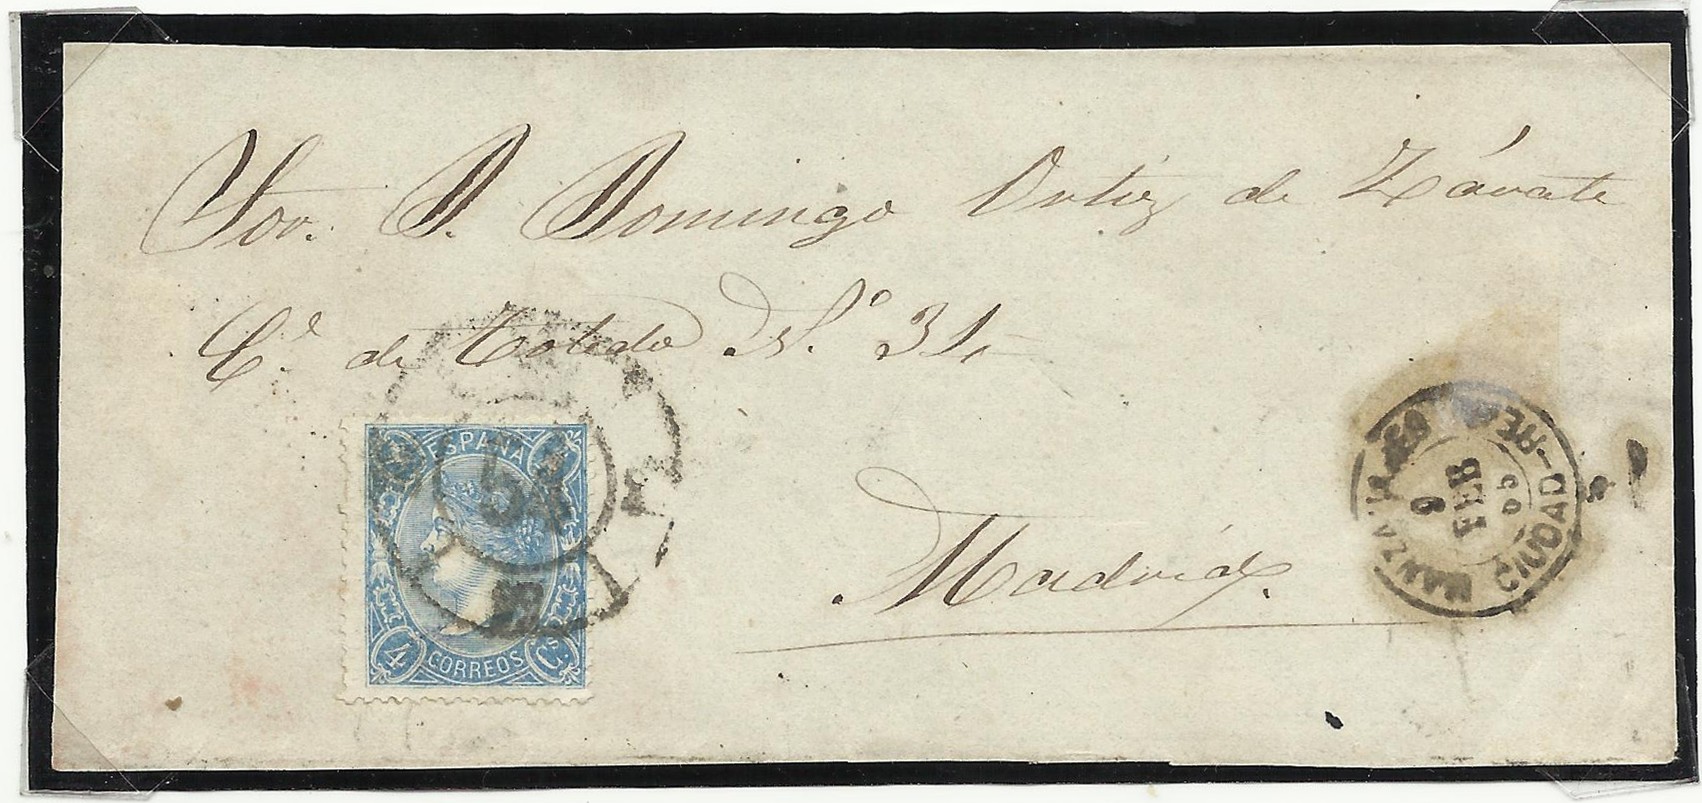 Sor. D. Domingo Ortiz de Zárate
C.e de Toledo N.º 31,
Madrid.
ESPAÑA
4 CORREOS Cs.
9
FEB
CIUDAD-RE